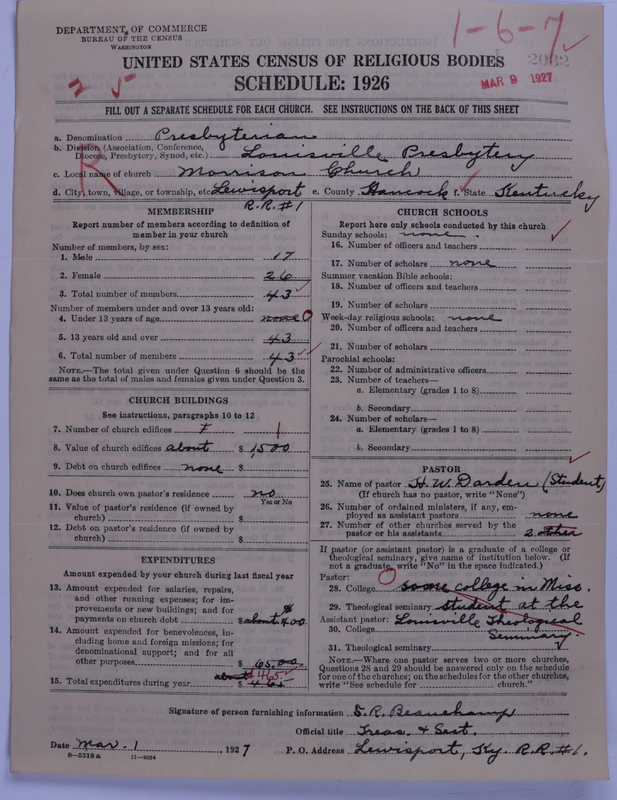 DEPARTMENT OF COMMERCE
BUREAU OF THE CENSUS
WASHINGTON
1-6-7
2032
MAR 9 1927
2 5
UNITED STATES CENSUS OF RELIGIOUS BODIES
SCHEDULE: 1926
FILL OUT A SEPARATE SCHEDULE FOR EACH CHURCH. SEE INSTRUCTIONS ON THE BACK OF THIS SHEET
R
a. Denomination Presbyterian
b. Division (Association, Conference, Diocese, Presbytery, Synod, etc.) Louisville Presbytery
c. Local name of church Morrison Church
d. City, town, village, or township, etc. Lewisport e. County Hancock f. State Kentucky
R.R.#1
MEMBERSHIP
Report number of members according to definition of
member in your church
Number of members, by sex:
1. Male 17
2. Female 26
3. Total number of members 43
Number of members under and over 13 years old:
4. Under 13 years of age none 0
5. 13 years old and over 43
6. Total number of members 43
NOTE.—The total given under Question 6 should be the
same as the total of males and females given under Question 3.
CHURCH BUILDINGS
See instructions, paragraphs 10 to 12
7. Number of church edifices 1 1
8. Value of church edifices about $ 1,500
9. Debt on church edifices none $
10. Does church own pastor's residence no
Yes or No
11. Value of pastor's residence (if owned by
church) $
12. Debt on pastor's residence (if owned by
church) $
EXPENDITURES
Amount expended by your church during last fiscal year
13. Amount expended for salaries, repairs,
and other running expenses; for im-
provements or new buildings; and for
payments on church debt $ about 400
14. Amount expended for benevolences, in-
cluding home and foreign missions; for
denominational support; and for all
other purposes $ 65.00
about 465
15. Total expenditures during year $ 465
CHURCH SCHOOLS
Report here only schools conducted by this church
Sunday schools: none
16. Number of officers and teachers
17. Number of scholars none
Summer vacation Bible schools:
18. Number of officers and teachers
19. Number of scholars
Week-day religious schools: none
20. Number of officers and teachers
21. Number of scholars
Parochial schools:
22. Number of administrative officers
23. Number of teachers—
a. Elementary (grades 1 to 8)
b. Secondary
24. Number of scholars—
a. Elementary (grades 1 to 8)
b. Secondary
PASTOR
25. Name of pastor H. W. Darden (Student)
(If church has no pastor, write "None")
26. Number of ordained ministers, if any, em-
ployed as assistant pastors none
27. Number of other churches served by the
pastor or his assistants 2 other
If pastor (or assistant pastor) is a graduate of a college or
theological seminary, give name of institution below. (If
not a graduate, write "No" in the space indicated.)
Pastor:
28. College some college in Miss.
29. Theological seminary student at the
Assistant pastor: Louisville Theological
30. College Seminary
31. Theological seminary
NOTE.—Where one pastor serves two or more churches,
Questions 28 and 29 should be answered only on the schedule
for one of the churches; on the schedules for the other churches,
write "See schedule for church."
Signature of person furnishing information S. R. Beauchamp
Official title Treas. & Sect.
Date Mar. 1, 1927 P. O. Address Lewisport, Ky. R.R.#1.
8—5518a 11—9084